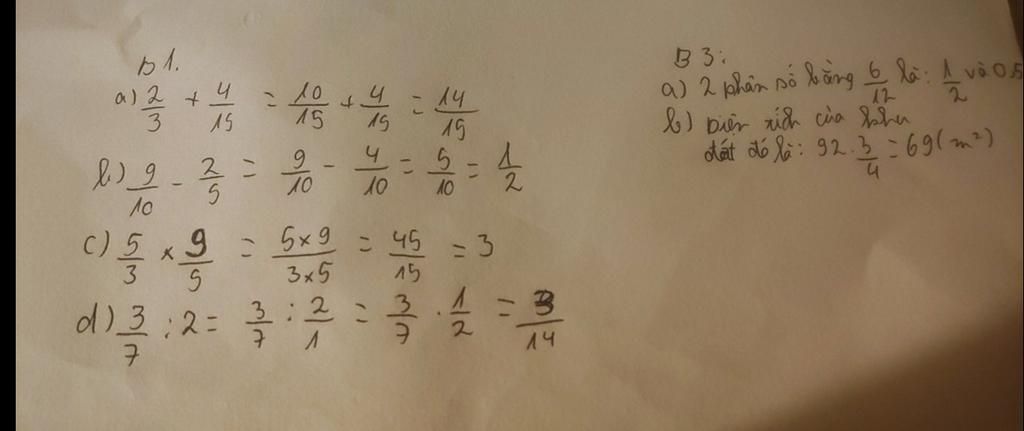 B1.
a) 2/3 + 4/15 = 10/15 + 4/15 = 14/15
b) 9/10 - 2/5 = 9/10 - 4/10 = 5/10 = 1/2
c) 5/3 × 9/5 = 5×9/3×5 = 45/15 = 3
d) 3/7 : 2 = 3/7 : 2/1 = 3/7 . 1/2 = 3/14
B3:
a) 2 phân số bằng 6/12 là: 1/2 và 0.5
b) Diện tích của khu
đất đó là: 92 . 3/4 = 69 (m²)